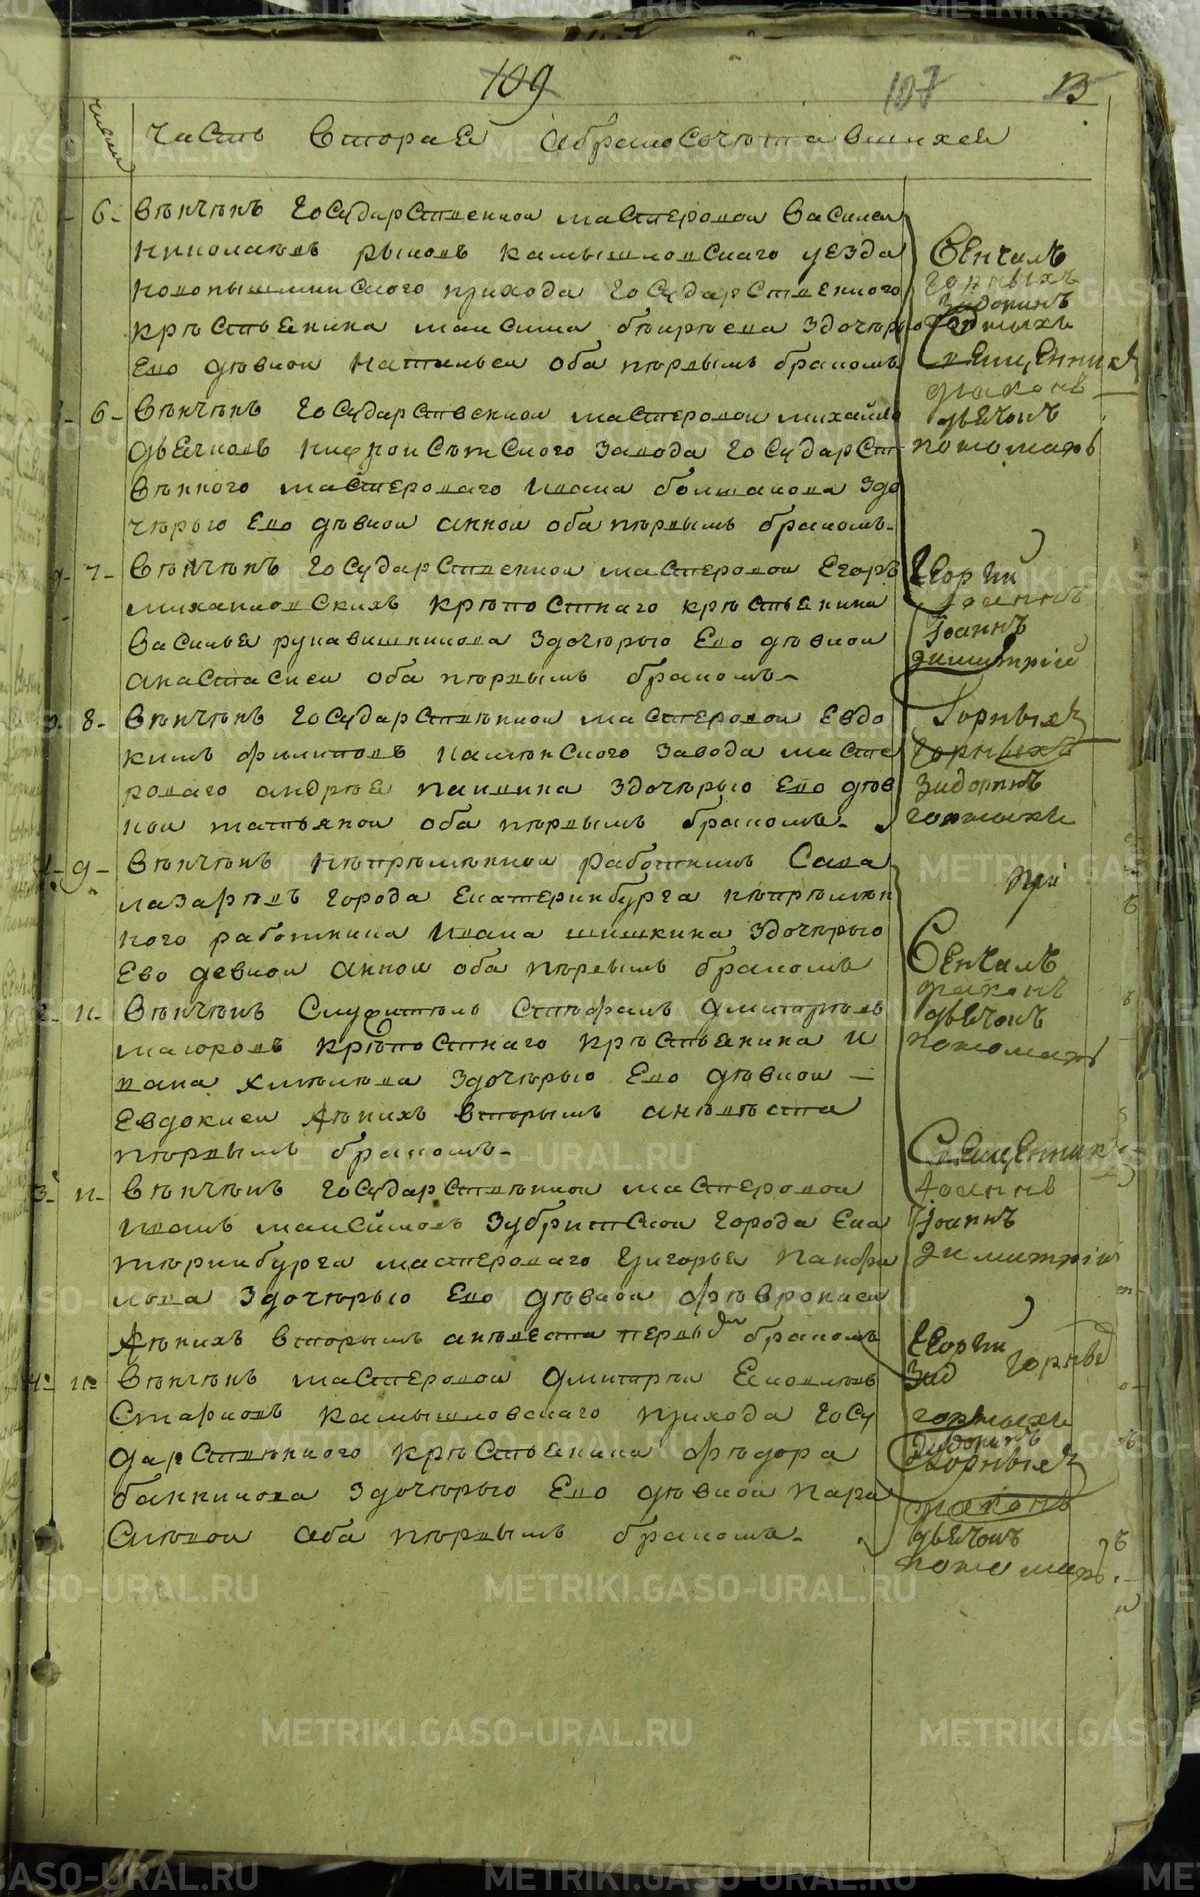 109 107
числа
часть вторая обрачосочетавшихся
6. венчен государственной мастеровой василей
николаев рыков камышловскаго уезда
новопышминского прихода государственного
крестьянина максима з дочерью
ево девкой натальей оба первым браком
6. венчен государственной мастеровой михайло
дьячков завода государст
венного мастероваго ивана болшакова з до
черью ево девкой анной оба первым браком
7. венчен государственной мастеровой егор
михайловских крепостнаго крестьянина
василья рукавишникова з дочерью ево девкой
анастасией оба первым браком
8. венчен государственной мастеровой евдо
ким филипов каменского завода масте
роваго андрея з дочерью ево дев
кой татьяной оба первым браком
9. венчен непременной работник сава
лазарев города екатеринбурга непремен
ного работника ивана шишкина з дочерью
ево девкой анной оба первым браком
11. венчен служитель стефан дмитриев
маюров крепостнаго крестьянина и
вана хмелева з дочерью ево девкой
евдокией жених вторым а невеста
первым браком
11. венчен государственной мастеровой
иван максимов зубритской города ека
теринбурга мастероваго григорья панфи
лова з дочерью ево девкой февронией
жених вторым а невеста первым браком
11. венчен мастеровой дмитрей яковлев
старков камышловскаго прихода госу
дарственного крестьянина федора
банникова з дочерью ево девкой пара
сковой оба первым браком
венчал
горных
священник
диакон
дьячок
пономарь
георгий
иоанн
иоанн
димитрий
горных
горных
при
венчал
диакон
дьячок
пономарь
священник
иоанн
иоанн
димитрий
георгий
горных
горных
диакон
дьячок
пономарь
METRIKI.GASO-URAL.RU